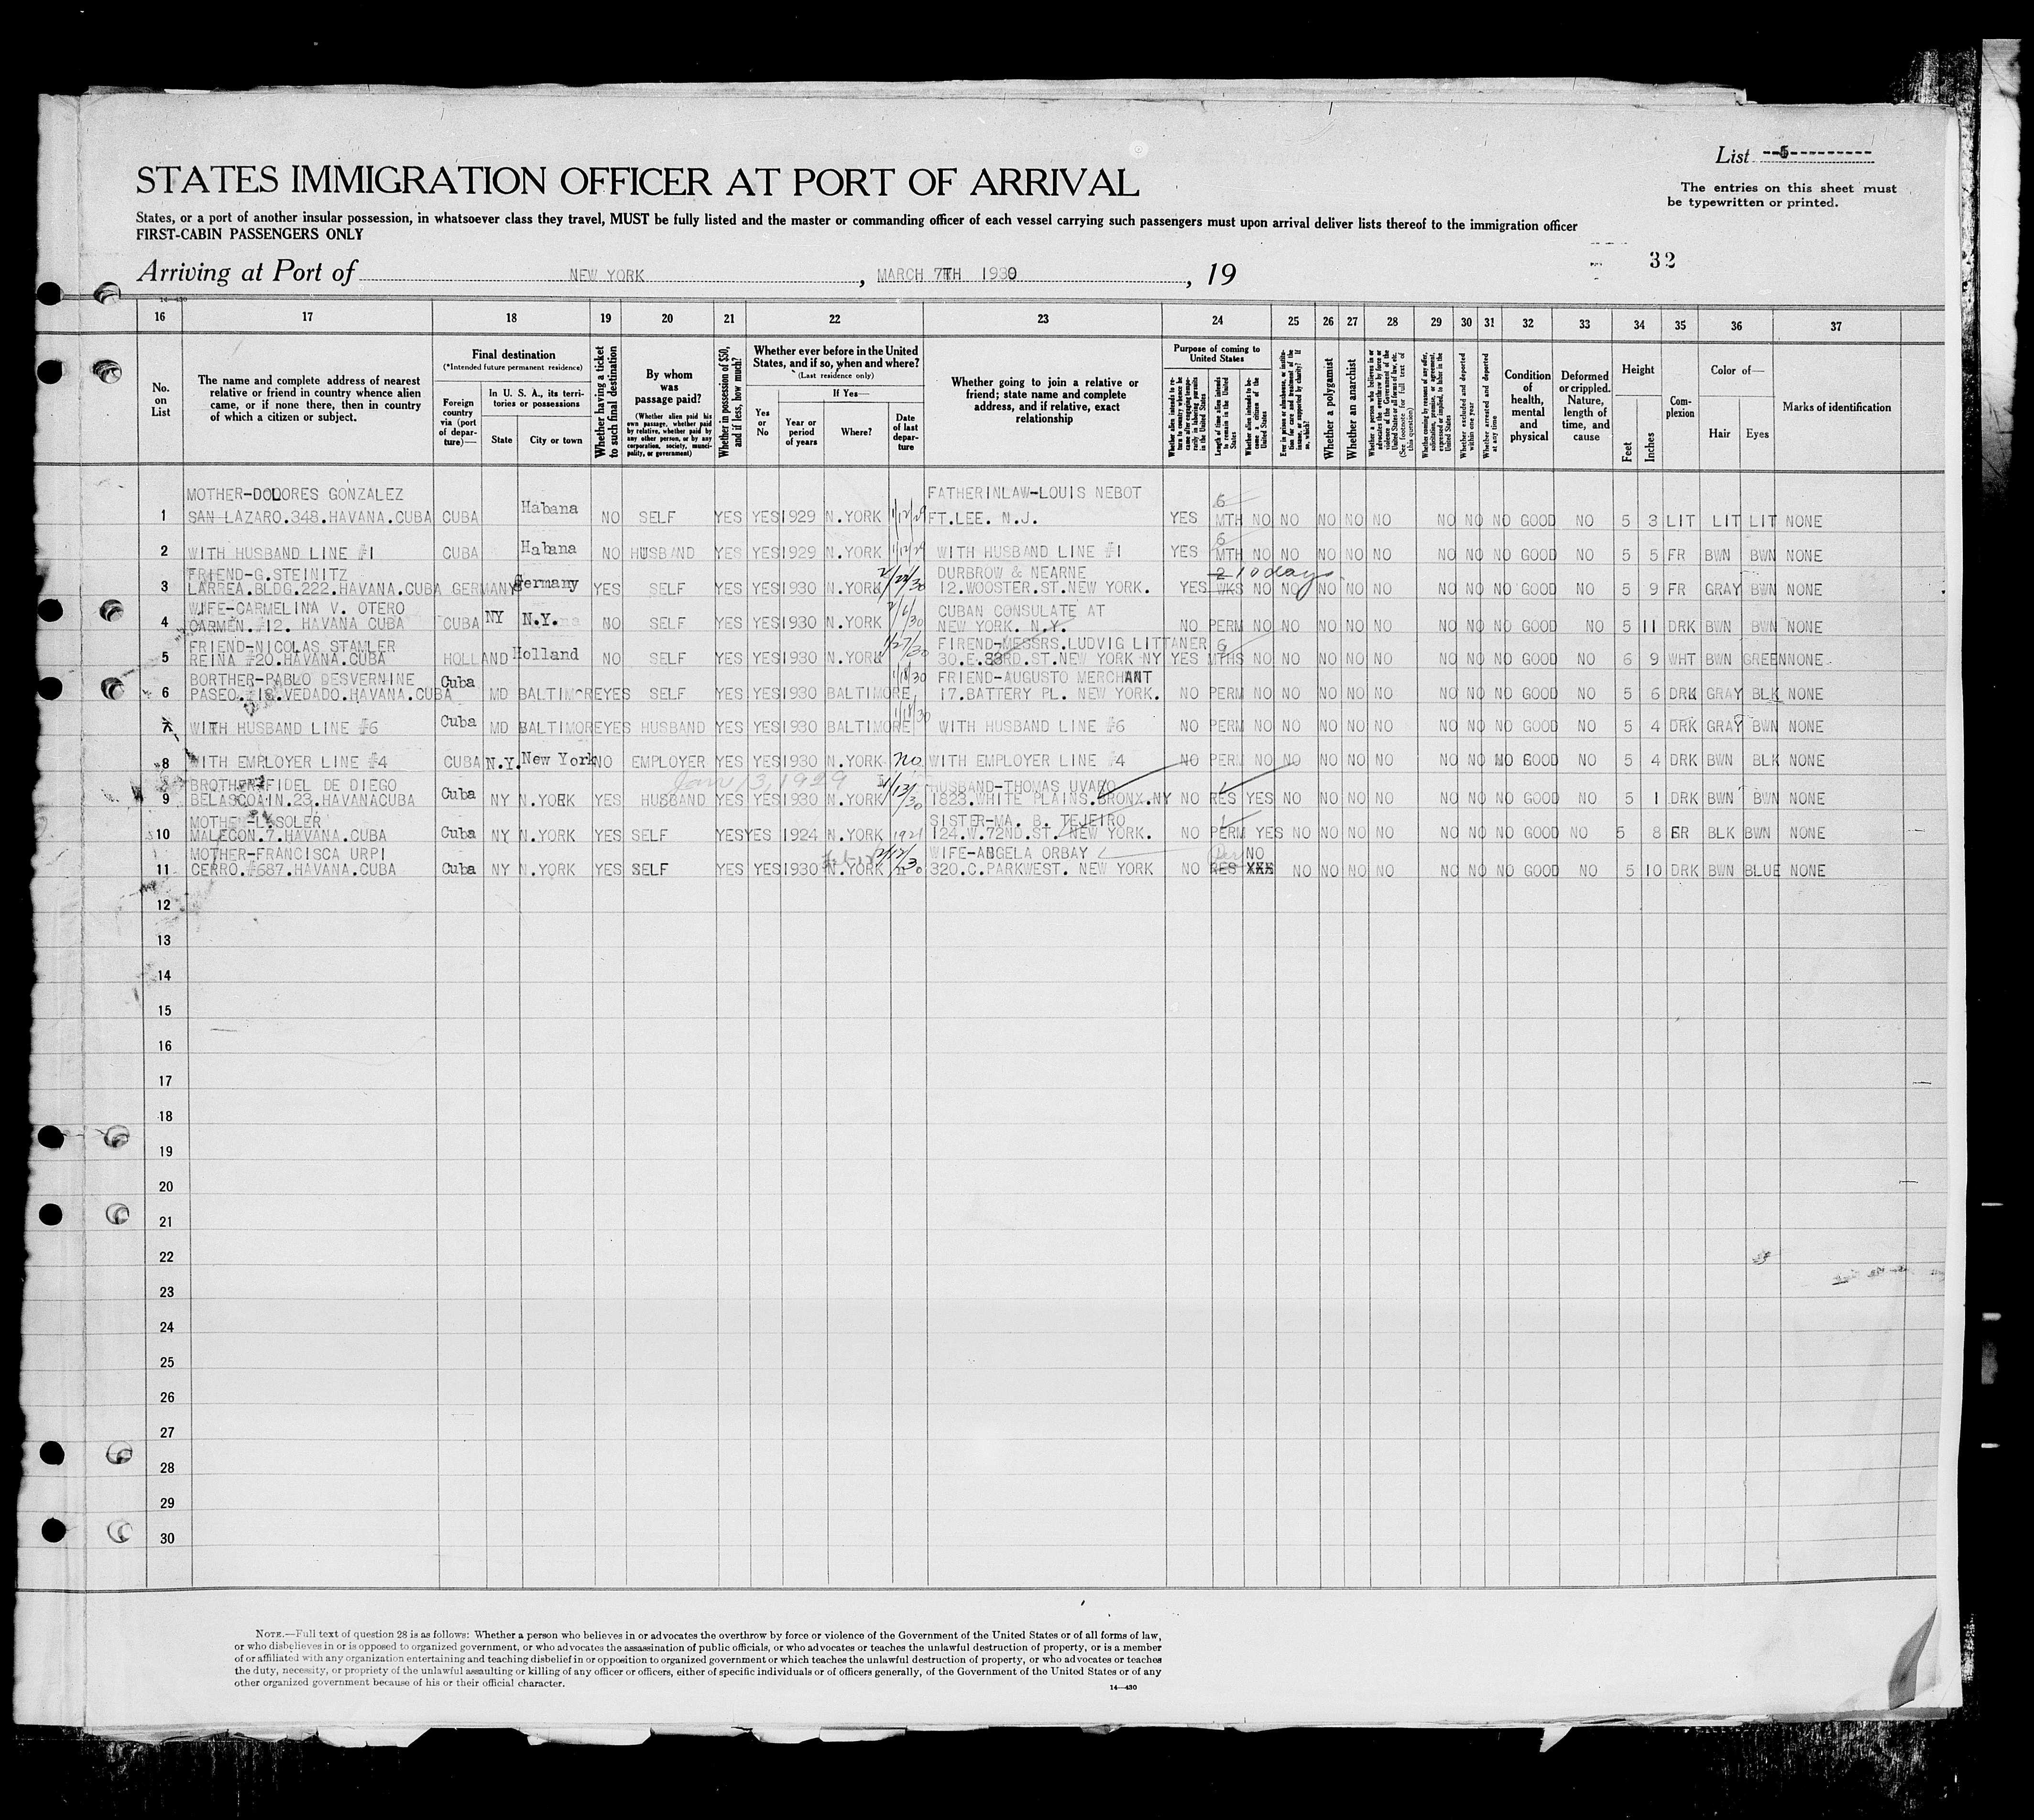 List --5----------
STATES IMMIGRATION OFFICER AT PORT OF ARRIVAL
The entries on this sheet must
be typewritten or printed.
States, or a port of another insular possession, in whatsoever class they travel, MUST be fully listed and the master or commanding officer of each vessel carrying such passengers must upon arrival deliver lists thereof to the immigration officer
FIRST-CABIN PASSENGERS ONLY
32
Arriving at Port of NEW YORK , MARCH 7TH 1930 , 19
14-430
16 17 18 19 20 21 22 23 24 25 26 27 28 29 30 31 32 33 34 35 36 37
No. on List
The name and complete address of nearest
relative or friend in country whence alien
came, or if none there, then in country
of which a citizen or subject.
Final destination
(*Intended future permanent residence)
Foreign country via (port of departure)—
In U. S. A., its territories or possessions
State
City or town
Whether having a ticket to such final destination
By whom was passage paid?
(Whether alien paid his own passage, whether paid by relative, whether paid by any other person, or by any corporation, society, municipality, or government)
Whether in possession of $50, and if less, how much?
Whether ever before in the United States, and if so, when and where?
(Last residence only)
Yes or No
If Yes—
Year or period of years
Where?
Date of last departure
Whether going to join a relative or
friend; state name and complete
address, and if relative, exact
relationship
Purpose of coming to United States
Whether alien intends to return to country whence he came after engaging temporarily in laboring pursuits in the United States
Length of time alien intends to remain in the United States
Whether alien intends to become a citizen of the United States
Ever in prison or almshouse, or institution for care and treatment of the insane, or supported by charity? If so, which?
Whether a polygamist
Whether an anarchist
Whether a person who believes in or advocates the overthrow by force or violence of the Government of the United States or all forms of law, etc. (See footnote for full text of this question)
Whether coming by reason of any offer, solicitation, promise, or agreement, expressed or implied, to labor in the United States
Whether excluded and deported within one year
Whether arrested and deported at any time
Condition of health, mental and physical
Deformed or crippled. Nature, length of time, and cause
Height
Feet
Inches
Complexion
Color of—
Hair
Eyes
Marks of identification
MOTHER-DOLORES GONZALEZ FATHERINLAW-LOUIS NEBOT 6
1 SAN LAZARO.348.HAVANA.CUBA CUBA Habana NO SELF YES YES 1929 N.YORK 1/12/29 FT.LEE. N.J. YES MTH NO NO NO NO NO NO NO NO GOOD NO 5 3 LIT LIT LIT NONE
6
2 WITH HUSBAND LINE #1 CUBA Habana NO HUSBAND YES YES 1929 N.YORK 1/12/29 WITH HUSBAND LINE #1 YES MTH NO NO NO NO NO NO NO NO GOOD NO 5 5 FR BWN BWN NONE
FRIEND-G.STEINITZ DURBROW & NEARNE 2 10 days
3 LARREA.BLDG.222.HAVANA.CUBA GERMANY Germany YES SELF YES YES 1930 N.YORK 12.WOOSTER.ST.NEW YORK. YES WKS NO NO NO NO NO NO NO NO GOOD NO 5 9 FR GRAY BWN NONE
WIFE-CARMELINA V. OTERO CUBAN CONSULATE AT
4 CARMEN. #12. HAVANA CUBA CUBA NY N.Y. NO SELF YES YES 1930 N.YORK NEW YORK. N.Y. NO PERM NO NO NO NO NO NO NO NO GOOD NO 5 11 DRK BWN BWN NONE
FRIEND-NICOLAS STAMLER FIREND-MESSRS.LUDVIG LITTANER 6
5 REINA #20.HAVANA.CUBA HOLLAND Holland NO SELF YES YES 1930 N.YORK 1/27/30 30.E.33RD.ST.NEW YORK NY YES MTHS NO NO NO NO NO NO NO NO GOOD NO 6 9 WHT BWN GREEN NONE
BORTHER-PABLO DESVERNINE FRIEND-AUGUSTO MERCHANT
6 PASEO.#18.VEDADO.HAVANA.CUBA Cuba MD BALTIMORE YES SELF YES YES 1930 BALTIMORE 1/18/30 17.BATTERY PL. NEW YORK. NO PERM NO NO NO NO NO NO NO NO GOOD NO 5 6 DRK GRAY BLK NONE
7 WITH HUSBAND LINE #6 Cuba MD BALTIMORE YES HUSBAND YES YES 1930 BALTIMORE 1/18/30 WITH HUSBAND LINE #6 NO PERM NO NO NO NO NO NO NO NO GOOD NO 5 4 DRK GRAY BWN NONE
8 WITH EMPLOYER LINE #4 CUBA N.Y. New York NO EMPLOYER YES YES 1930 N.YORK no WITH EMPLOYER LINE #4 NO PERM NO NO NO NO NO NO NO NO GOOD NO 5 4 DRK BWN BLK NONE
BROTHER-FIDEL DE DIEGO Jan 13, 1929 HUSBAND-THOMAS UVARO
9 BELASCOAIN.23.HAVANACUBA Cuba NY N.YORK YES HUSBAND YES YES 1930 N.YORK 1/13/30 1823.WHITE PLAINS.BRONX.NY NO RES YES NO NO NO NO NO NO NO GOOD NO 5 1 DRK BWN BWN NONE
MOTHER-L.SOLER SISTER-MA. B. TEJEIRO
10 MALECON.7.HAVANA.CUBA Cuba NY N.YORK YES SELF YES YES 1924 N.YORK 124.W.72ND.ST. NEW YORK. NO PERM YES NO NO NO NO NO NO NO GOOD NO 5 8 FR BLK BWN NONE
MOTHER-FRANCISCA URPI WIFE-ANGELA ORBAY NO
11 CERRO.#687.HAVANA.CUBA Cuba NY N.YORK YES SELF YES YES 1930 N.YORK 320.C.PARKWEST. NEW YORK NO RES XXX NO NO NO NO NO NO NO GOOD NO 5 10 DRK BWN BLUE NONE
12
13
14
15
16
17
18
19
20
21
22
23
24
25
26
27
28
29
30
NOTE.—Full text of question 28 is as follows: Whether a person who believes in or advocates the overthrow by force or violence of the Government of the United States or of all forms of law,
or who disbelieves in or is opposed to organized government, or who advocates the assassination of public officials, or who advocates or teaches the unlawful destruction of property, or is a member
of or affiliated with any organization entertaining and teaching disbelief in or opposition to organized government or which teaches the unlawful destruction of property, or who advocates or teaches
the duty, necessity, or propriety of the unlawful assaulting or killing of any officer or officers, either of specific individuals or of officers generally, of the Government of the United States or of any
other organized government because of his or their official character.
14-430